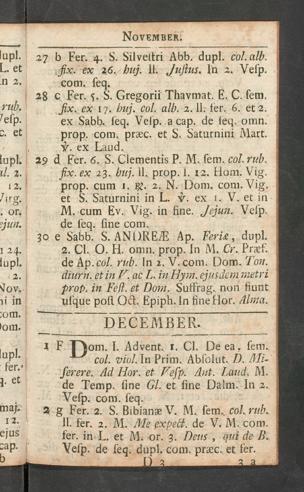 NOVEMBER.
27 b Fer. 4. S. Silvestri Abb. dupl. col. alb.
fix. ex 26. huj. ll. Justus. In 2. Vesp.
com. seq.
28 c Fer. 5. S. Gregorii Thavmat. E. C. sem.
fix. ex 17. huj. col. alb. 2. ll. fer. 6. et 2.
ex Sabb. seq. Vesp. a cap. de seq. omn.
prop. com. præc. et S. Saturnini Mart.
℣. ex Laud.
29 d Fer. 6. S. Clementis P. M. sem. col. rub.
fix. ex 23. huj. ll. prop. l. 12. Hom. Vig.
prop. cum 1. ℟. 2. N. Dom. com. Vig.
et S. Saturnini in L. ℣. ex 1. V. et in
M. cum Ev. Vig. in fine. Jejun. Vesp.
de seq. sine com.
30 e Sabb. S. ANDREÆ Ap. Feriæ, dupl.
2. Cl. O. H. omn. prop. In M. Cr. Præf.
de Ap. col. rub. In 2. V. com. Dom. Ton.
diurn. et in V. ac L. in Hym. ejusdem metri
prop. in Fest. et Dom. Suffrag. non fiunt
usque post Oct. Epiph. In fine Hor. Alma.
DECEMBER.
1 F Dom. I. Advent. 1. Cl. De ea. sem.
col. viol. In Prim. Absolut. D. Mi-
serere. Ad Hor. et Vesp. Ant. Laud. M.
de Temp. sine Gl. et fine Dalm. In 2.
Vesp. com. seq.
2 g Fer. 2. S. Bibianæ V. M. sem. col. rub.
ll. fer. 2. M. Me expect. de V. M. com.
fer. in L. et M. or. 3. Deus, qui de B.
Vesp. de seq. dupl. com. præc. et fer.
D 3 3 a